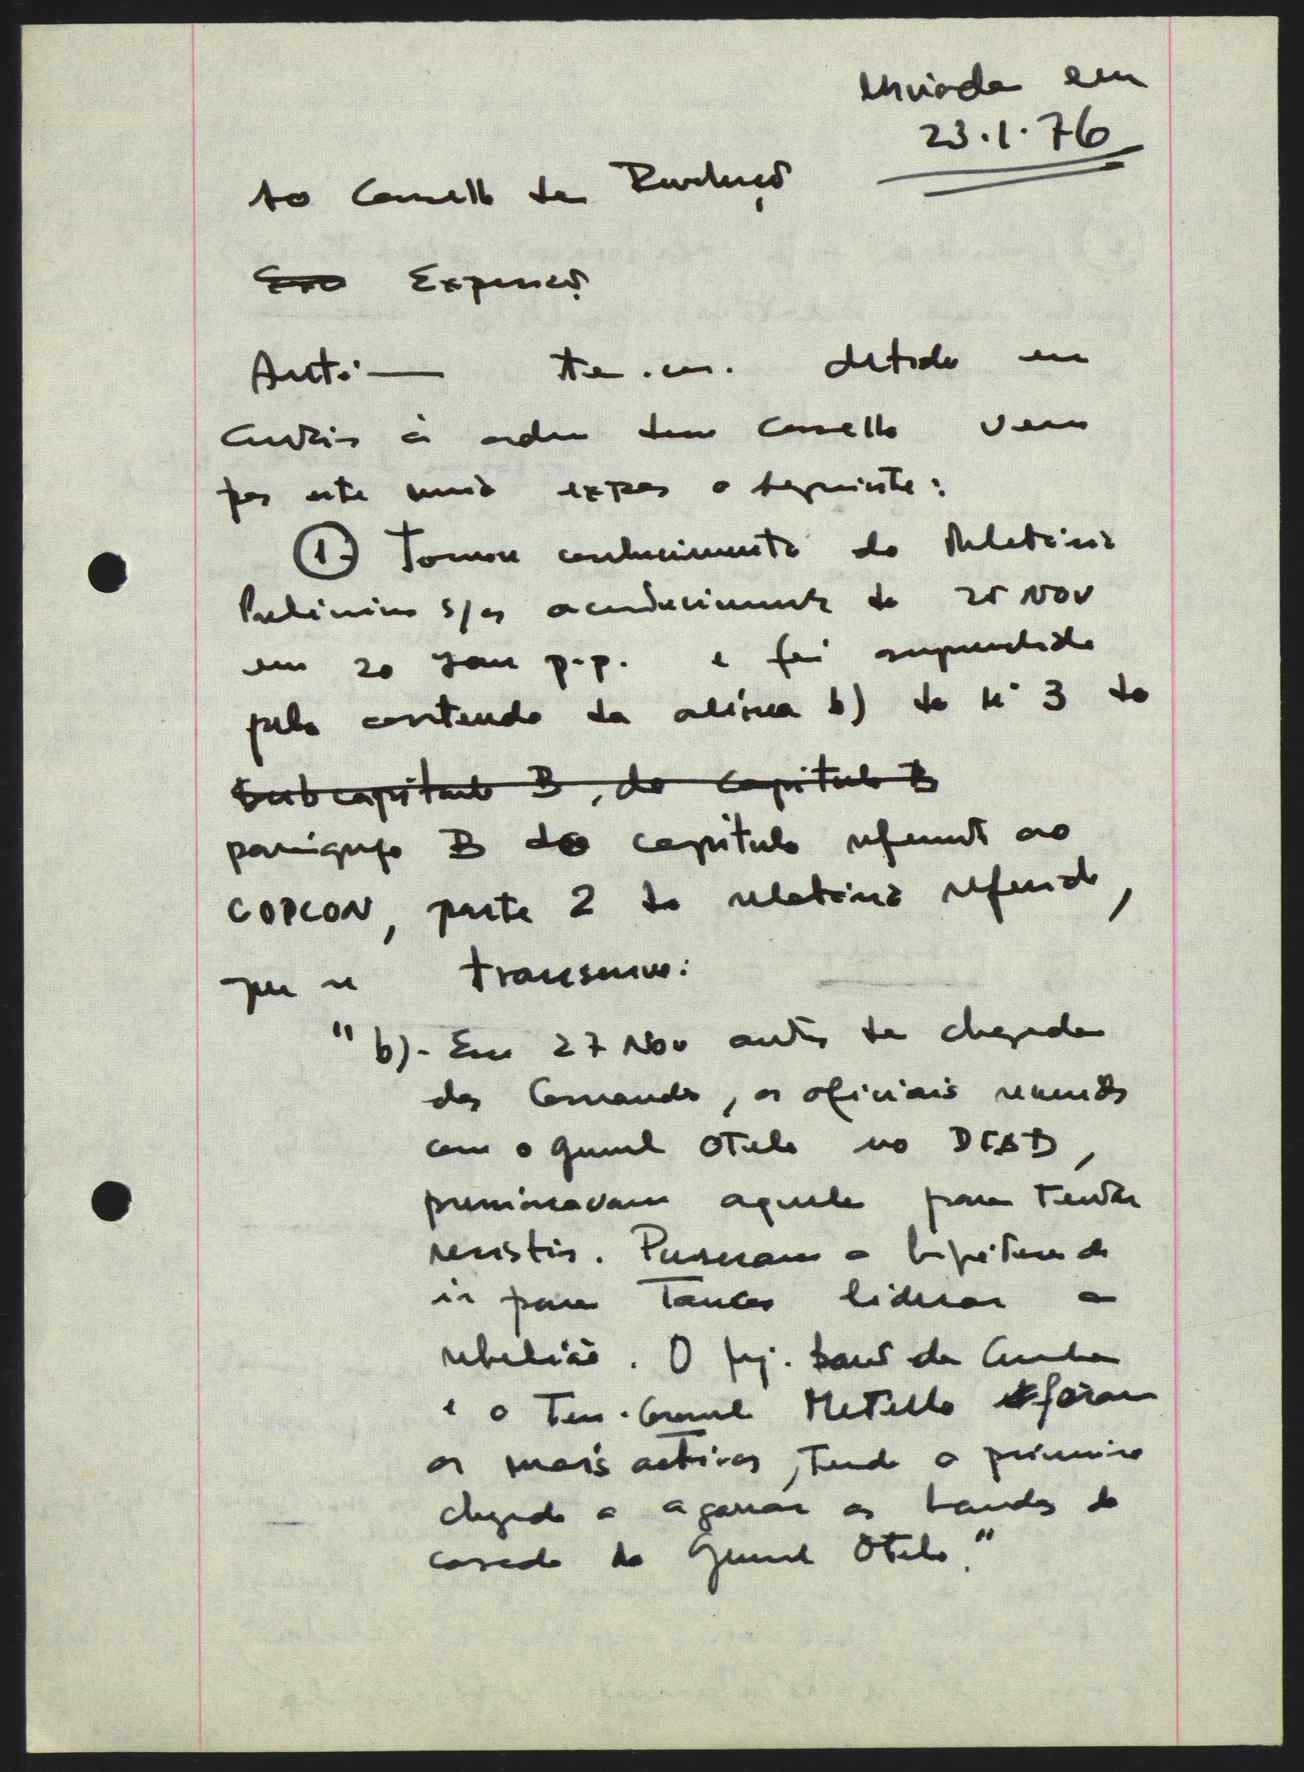 Enviada em
23.1.76
Ao Conselho da Revolução
Exposição
Antó— Ten. cor. detido em
Custóias à ordem desse Conselho vem
por este meio expor o seguinte:
1- Tomou conhecimento do Relatório
Preliminar s/os acontecimentos de 25 Nov
em 20 Jan p.p. e foi surpreendido
pelo conteúdo da alínea b) do nº 3 do
Subcapítulo B, do capítulo B
parágrafo B do capítulo referente ao
COPCON, parte 2 do relatório referido,
que se transcreve:
"b)- Em 27 Nov antes da chegada
dos Comandos, os oficiais reunidos
com o general Otelo no
pressionavam aquele para tentar
resistir. Puseram a hipótese de
ir para Tancos liderar a
rebelião. O Maj. Tomé da Cunha
e o Ten. Coronel Metello foram
os mais activos, tendo o primeiro
chegado a agarrar as bandas do
casaco do General Otelo."